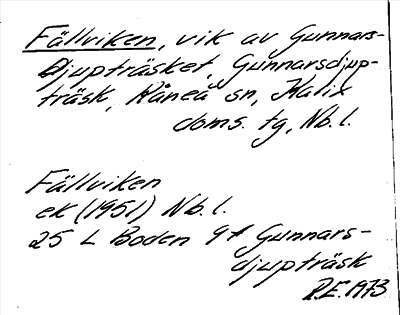 Fällviken, vik av Gunnars-
djupträsket, Gunnarsdjup-
träsk, Råneå sn, Kalix
doms. tg, Nb. l.
Fällviken
ek (1951) Nb. l.
25 L Boden 9f Gunnars-
djupträsk
R.E. 1973